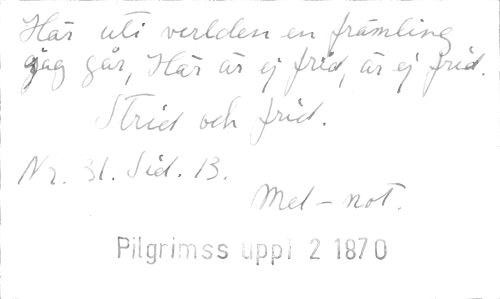 Här uti verlden en främling
jag går, Här är ej frid, är ej frid.
Strid och frid.
Nr. 31. Sid. 13.
Mel-not.
Pilgrimss uppl 2 1870